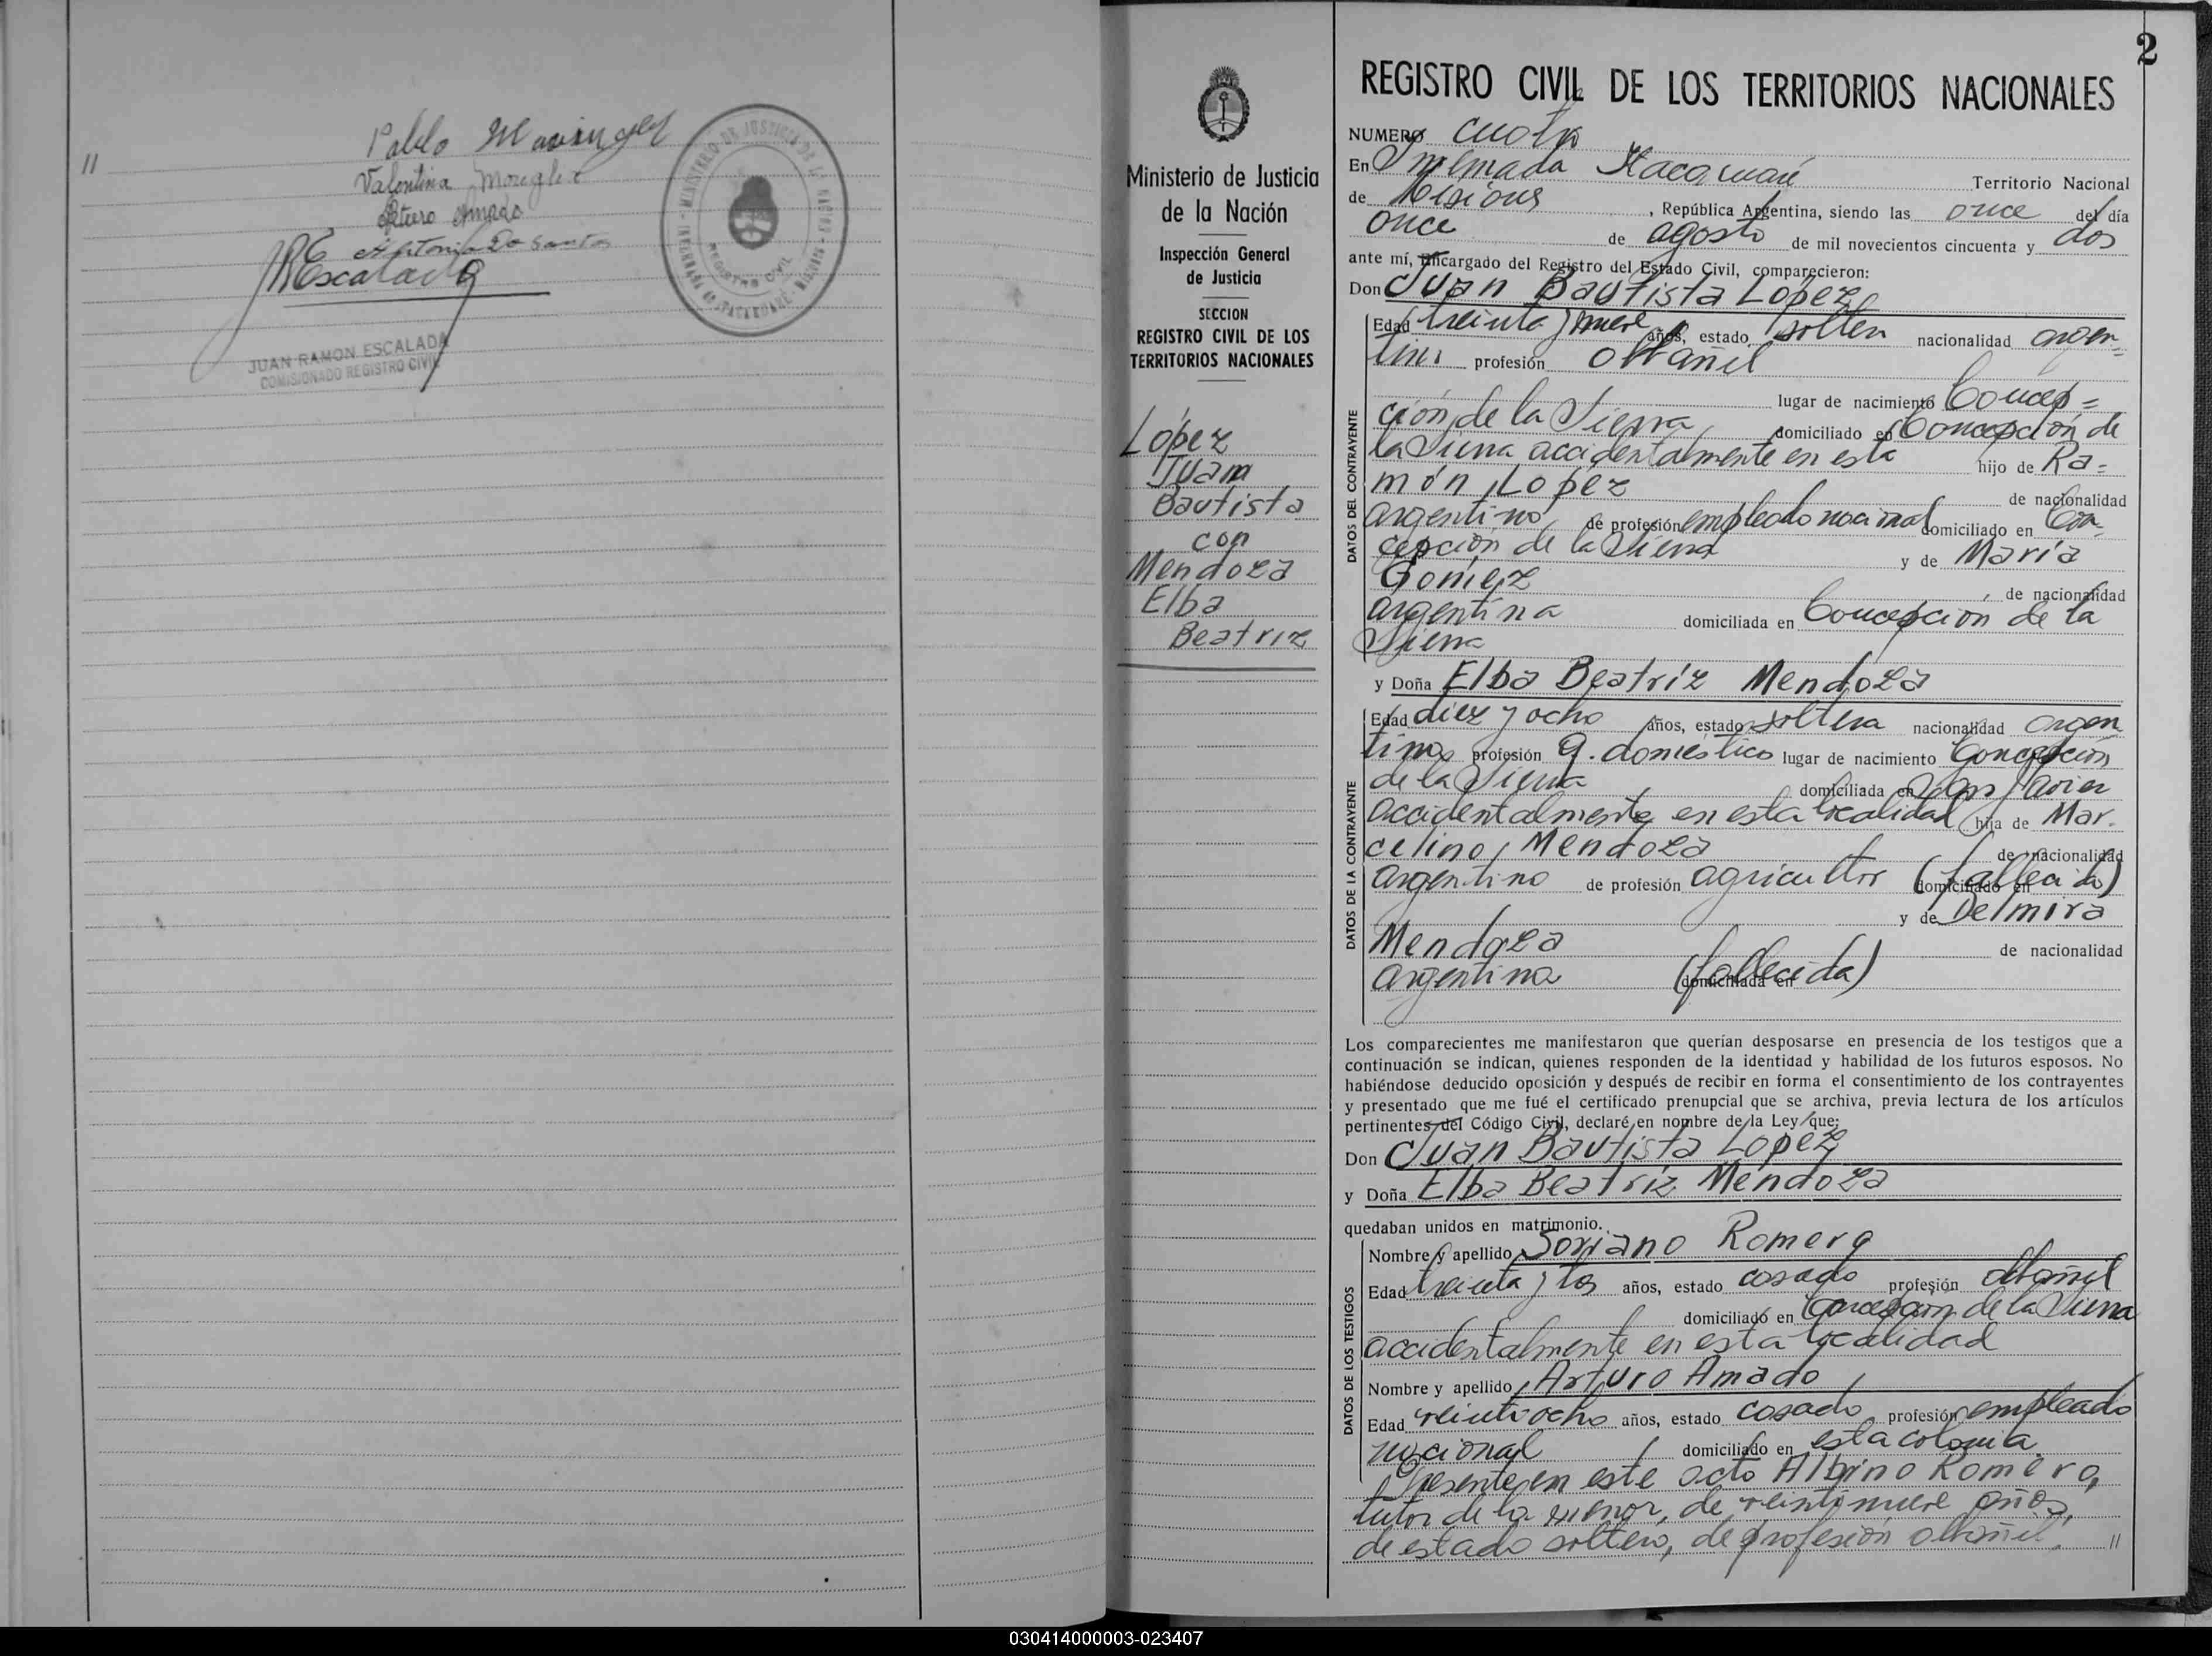 "
Pablo
Valentina
Arturo Amado
Antonio Do Santos
JREscalada
JUAN RAMON ESCALADA
COMISIONADO REGISTRO CIVIL
MINISTERIO DE JUSTICIA DE LA NACION
REGISTRO CIVIL
2
Ministerio de Justicia
de la Nación
Inspección General
de Justicia
SECCION
REGISTRO CIVIL DE LOS
TERRITORIOS NACIONALES
López
Juan
Bautista
con
Mendoza
Elba
Beatriz
REGISTRO CIVIL DE LOS TERRITORIOS NACIONALES
NUMERO cuatro
En Itacaruaré Territorio Nacional
de Misiones, República Argentina, siendo las once del día
once de agosto de mil novecientos cincuenta y dos
ante mí, Encargado del Registro del Estado Civil, comparecieron:
Don Juan Bautista López
Edad treinta y nueve años, estado soltero nacionalidad argen-
tino profesión albañil
lugar de nacimiento Concep=
ción de la Sierra domiciliado en Concepción de
la Sierra accidentalmente en esta hijo de Ra=
món López de nacionalidad
argentino de profesión empleado nacional domiciliado en Con-
cepción de la Sierra y de María
Gomez, de nacionalidad
argentina domiciliada en Concepción de la
Sierra
y Doña Elba Beatríz Mendoza
Edad diez y ocho años, estado soltera nacionalidad argen
tina profesión q. doméstico lugar de nacimiento Concepción
de la Sierra domiciliada en San Javier
accidentalmente en esta localidad hija de Mar-
celino Mendoza de nacionalidad
argentino de profesión agricultor domiciliado en (fallecido)
y de Delmira
Mendoza de nacionalidad
argentina domiciliada en (fallecida)
DATOS DEL CONTRAYENTE
DATOS DE LA CONTRAYENTE
Los comparecientes me manifestaron que querían desposarse en presencia de los testigos que a
continuación se indican, quienes responden de la identidad y habilidad de los futuros esposos. No
habiéndose deducido oposición y después de recibir en forma el consentimiento de los contrayentes
y presentado que me fué el certificado prenupcial que se archiva, previa lectura de los artículos
pertinentes del Código Civil, declaré en nombre de la Ley que:
Don Juan Bautista López
y Doña Elba Beatríz Mendoza
quedaban unidos en matrimonio.
Nombre y apellido Soriano Romero
Edad treinta y tos años, estado casado profesión albañil
domiciliado en Concepción de la Sierra
accidentalmente en esta localidad
Nombre y apellido Arturo Amado
Edad veintiocho años, estado casado profesión empleado
nacional domiciliado en esta colonia.
DATOS DE LOS TESTIGOS
Presente en este acto Albino Romero,
tutor de la menor, de veintinueve años,
de estado soltero, de profesión albañil. "
030414000003-023407